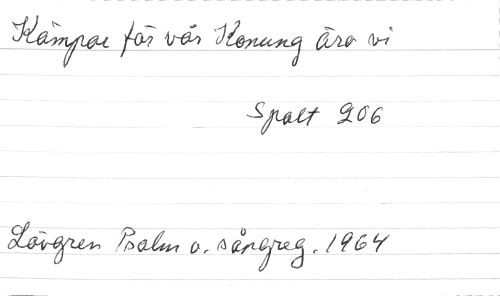 Kämpar för vår Konung äro vi
Spalt 206
Lövgren Psalm o. sångreg. 1964